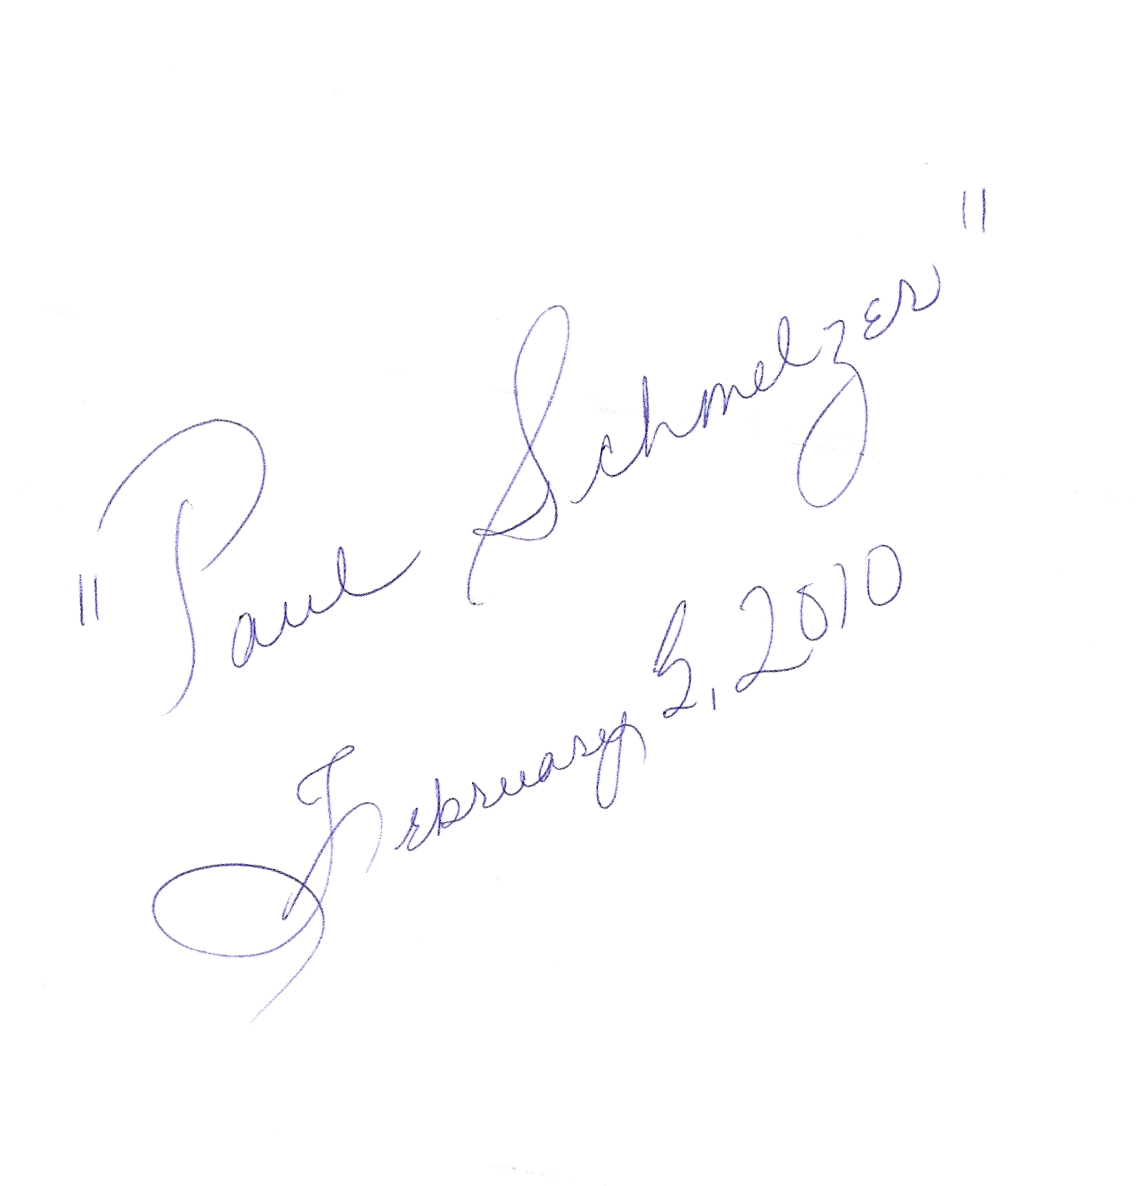 "Paul Schmelzer"
February 3, 2010